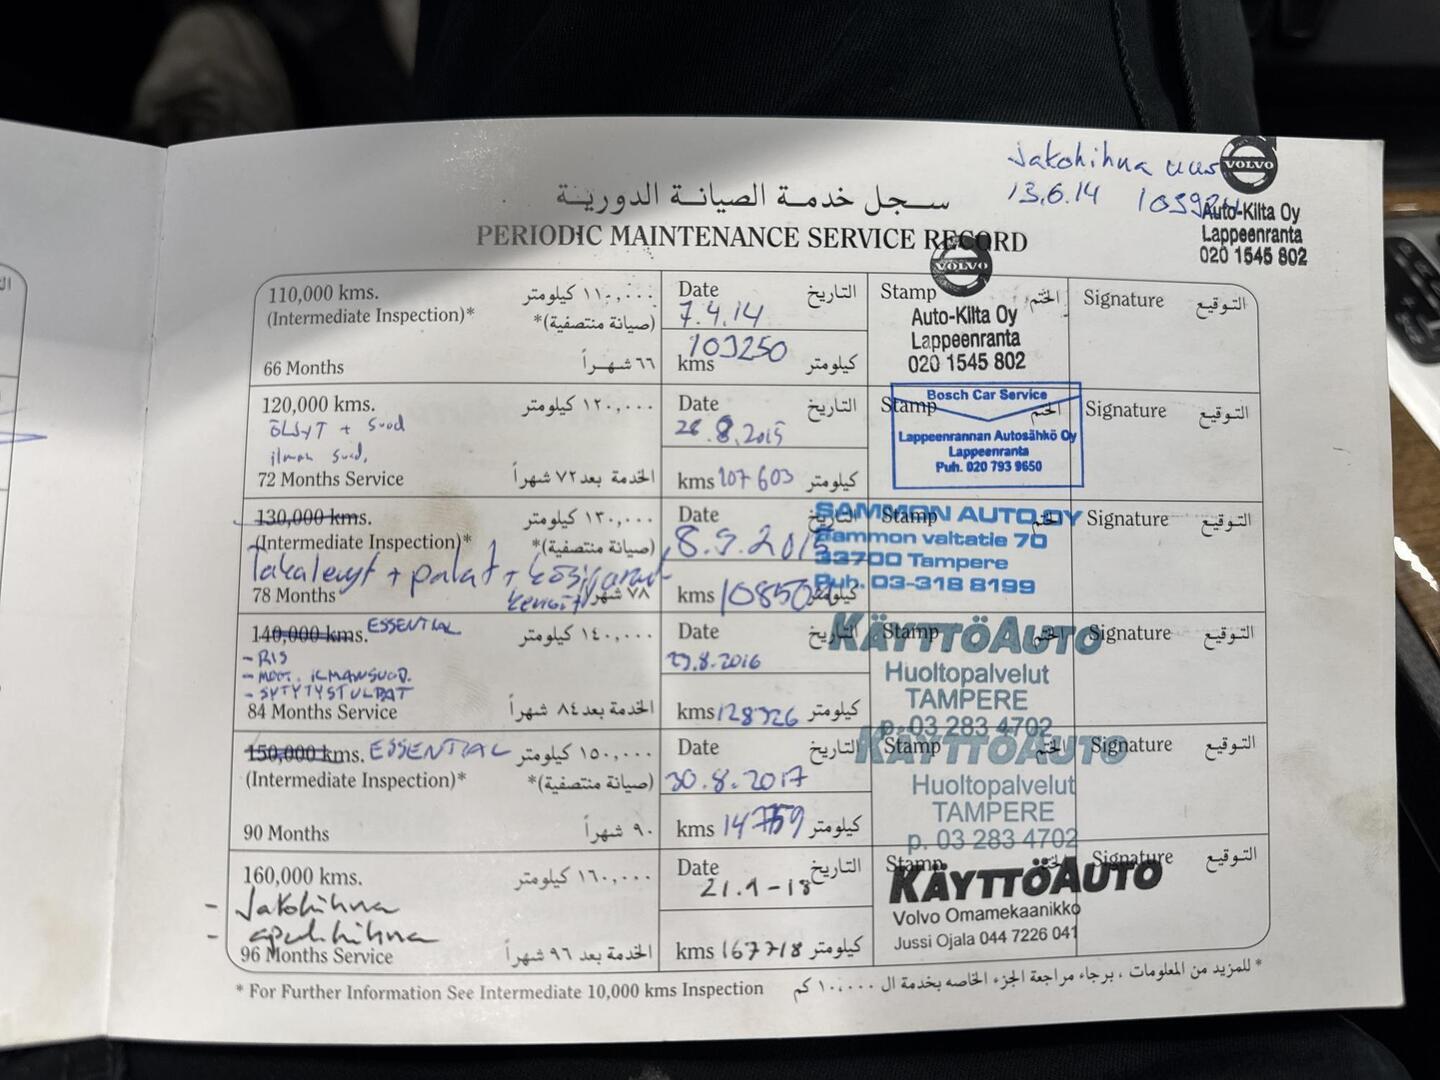 Jakohihna uus
13.6.14
VOLVO
Auto-Kilta Oy
Lappeenranta
020 1545 802
سجل خدمة الصيانة الدورية
PERIODIC MAINTENANCE SERVICE RECORD
110,000 kms.
١١٠,٠٠٠ كيلومتر
(Intermediate Inspection)*
(صيانة منتصفية)*
66 Months
٦٦ شهراً
Date 7.4.14 التاريخ
kms 103250 كيلومتر
Stamp الختم
VOLVO
Auto-Kilta Oy
Lappeenranta
020 1545 802
Signature التوقيع
120,000 kms.
١٢٠,٠٠٠ كيلومتر
ÖLJYT + suod
ilman suod.
72 Months Service
الخدمة بعد ٧٢ شهراً
Date 8.2015 التاريخ
kms 107603 كيلومتر
Stamp الختم
Bosch Car Service
Lappeenrannan Autosähkö Oy
Lappeenranta
Puh. 020 793 9650
Signature التوقيع
130,000 kms.
١٣٠,٠٠٠ كيلومتر
(Intermediate Inspection)*
(صيانة منتصفية)*
Takalevyt + palat + käsijarrut
78 Months
٧٨ شهراً
Date 8.9.2015 التاريخ
kms كيلومتر
Stamp الختم
SAMMON AUTO OY
Sammon valtatie 70
33700 Tampere
Puh. 03-318 8199
Signature التوقيع
140,000 kms. ESSENTIAL
١٤٠,٠٠٠ كيلومتر
- RIS
- MOOT. ILMANSUOD.
- SYTYTYSTULPAT
84 Months Service
الخدمة بعد ٨٤ شهراً
Date 29.8.2016 التاريخ
kms 128326 كيلومتر
Stamp الختم
KÄYTTÖAUTO
Huoltopalvelut
TAMPERE
p. 03 283 4702
Signature التوقيع
150,000 kms. ESSENTIAL
١٥٠,٠٠٠ كيلومتر
(Intermediate Inspection)*
(صيانة منتصفية)*
90 Months
٩٠ شهراً
Date 30.8.2017 التاريخ
kms كيلومتر
Stamp الختم
KÄYTTÖAUTO
Huoltopalvelut
TAMPERE
p. 03 283 4702
Signature التوقيع
160,000 kms.
١٦٠,٠٠٠ كيلومتر
- Jakohihna
- apulhihna
96 Months Service
الخدمة بعد ٩٦ شهراً
Date 21.1-18 التاريخ
kms 167718 كيلومتر
Stamp الختم
KÄYTTÖAUTO
Volvo Omamekaanikko
Jussi Ojala 044 7226 041
Signature التوقيع
* For Further Information See Intermediate 10,000 kms Inspection
* للمزيد من المعلومات ، برجاء مراجعة الجزء الخاصه بخدمة ال ١٠,٠٠٠ كم